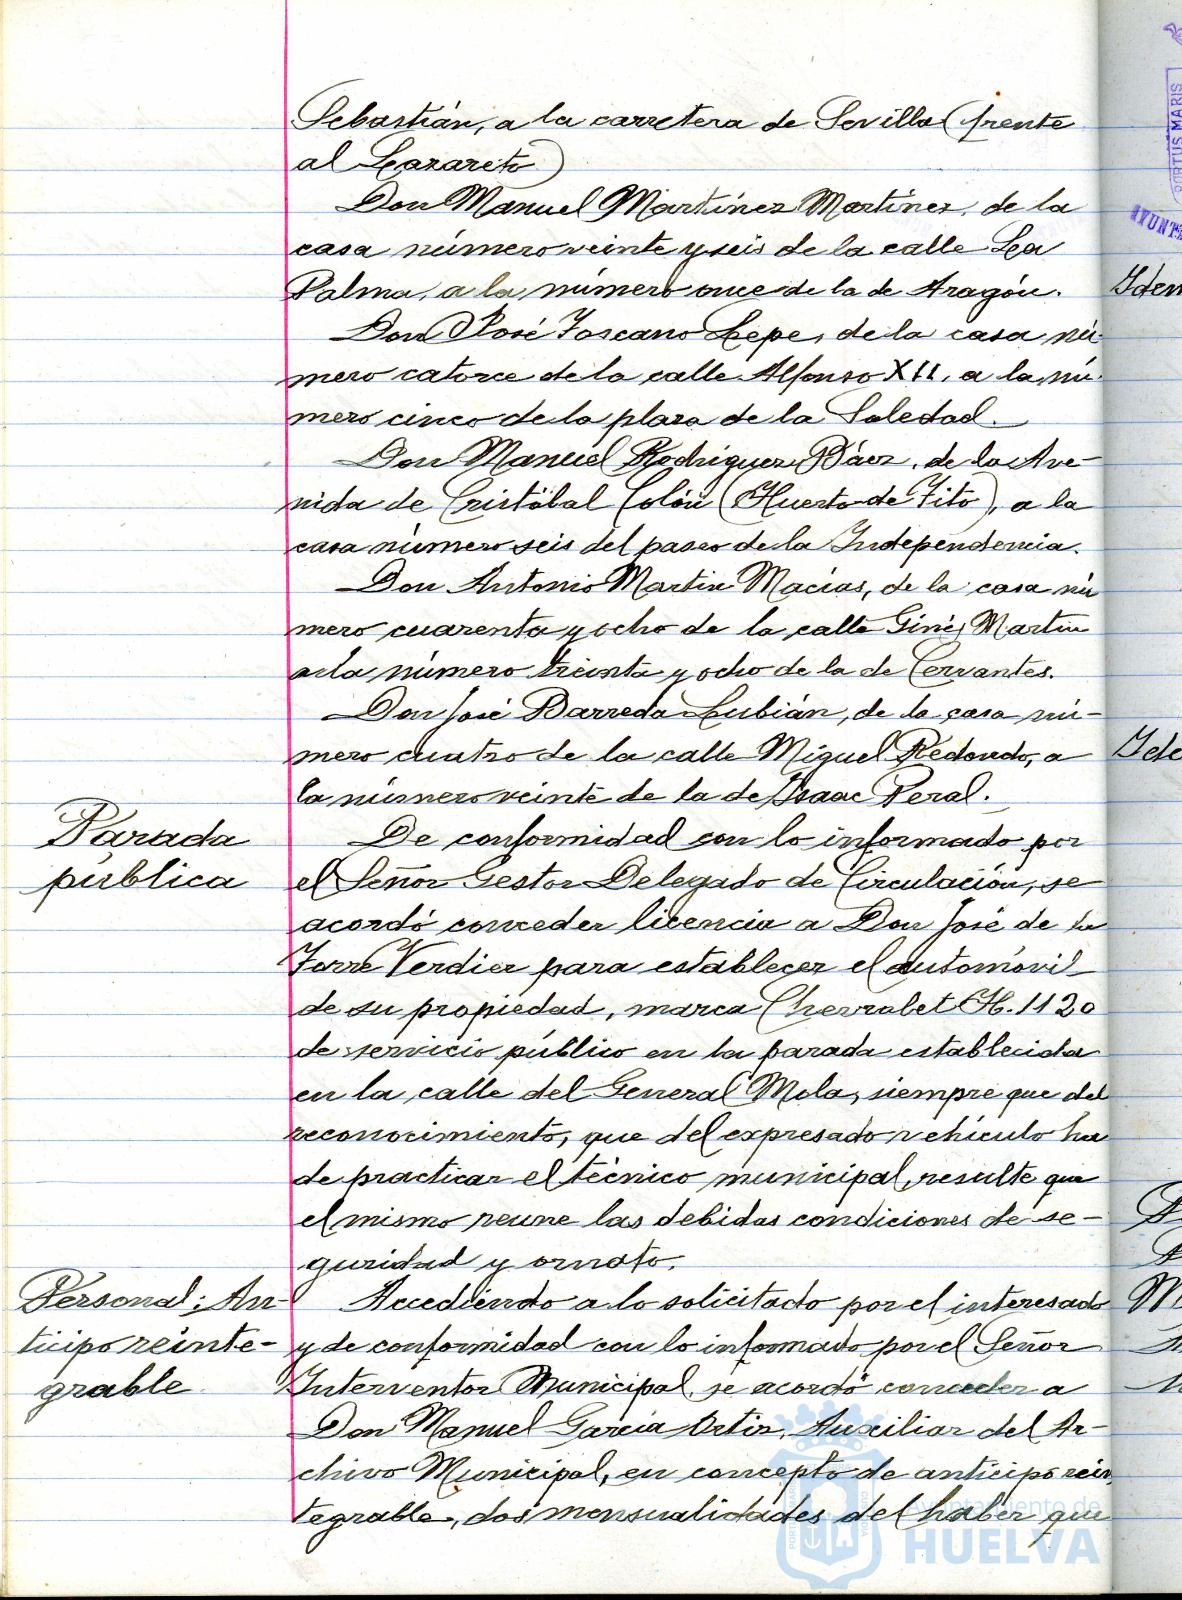 Sebastián, a la carretera de Sevilla (frente
al Lazareto)
Don Manuel Martínez Martínez, de la
casa número veinte y seis de la calle La
Palma, a la número once de la de Aragón.
Don José Toscano Lepe, de la casa nú-
mero catorce de la calle Alfonso XII, a la nú-
mero cinco de la plaza de la Soledad.
Don Manuel Rodríguez Báez, de la Ave-
nida de Cristóbal Colón (Huerto de Tito), a la
casa número seis del paseo de la Independencia.
Don Antonio Martín Macías, de la casa nú
mero cuarenta y ocho de la calle Ginés Martín
a la número treinta y ocho de la de Cervantes.
Don José Barreda Lubián, de la casa nú-
mero cuatro de la calle Miguel Redondo, a
la número veinte de la de Isaac Peral.
Parada
pública
De conformidad con lo informado por
el Señor Gestor Delegado de Circulación, se
acordó conceder licencia a Don José de la
Torre Verdier para establecer el automóvil
de su propiedad, marca Chevrolet H. 1120
de servicio público en la parada establecida
en la calle del General Mola, siempre que del
reconocimiento, que del expresado vehículo ha
de practicar el técnico municipal, resulte que
el mismo reune las debidas condiciones de se-
guridad y ornato.
Personal: An-
ticipo reinte-
grable
Accediendo a lo solicitado por el interesado
y de conformidad con lo informado por el Señor
Interventor Municipal, se acordó conceder a
Don Manuel García Ortiz, Auxiliar del Ar-
chivo Municipal, en concepto de anticipo rein
tegrable, dos mensualidades del haber que
Ayuntamiento de
HUELVA
PORTUS MARIS
AYUNT
Idem
Ide